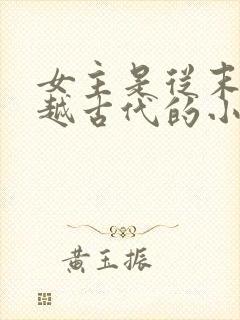 女主是从末
越古代的小
黄玉振